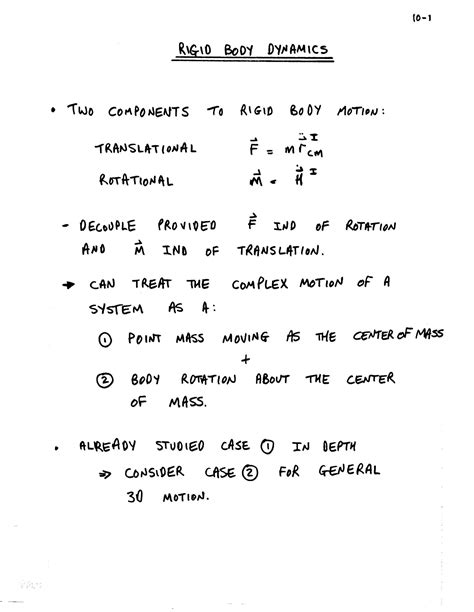 10-1
RIGID BODY DYNAMICS
• TWO COMPONENTS TO RIGID BODY MOTION:
TRANSLATIONAL F⃗ = m r̈⃗_CM^I
ROTATIONAL M⃗ = Ḣ⃗^I
- DECOUPLE PROVIDED F⃗ IND OF ROTATION
AND M⃗ IND OF TRANSLATION.
→ CAN TREAT THE COMPLEX MOTION OF A
SYSTEM AS A:
① POINT MASS MOVING AS THE CENTER OF MASS
+
② BODY ROTATION ABOUT THE CENTER
OF MASS.
• ALREADY STUDIED CASE ① IN DEPTH
⇒ CONSIDER CASE ② FOR GENERAL
3D MOTION.